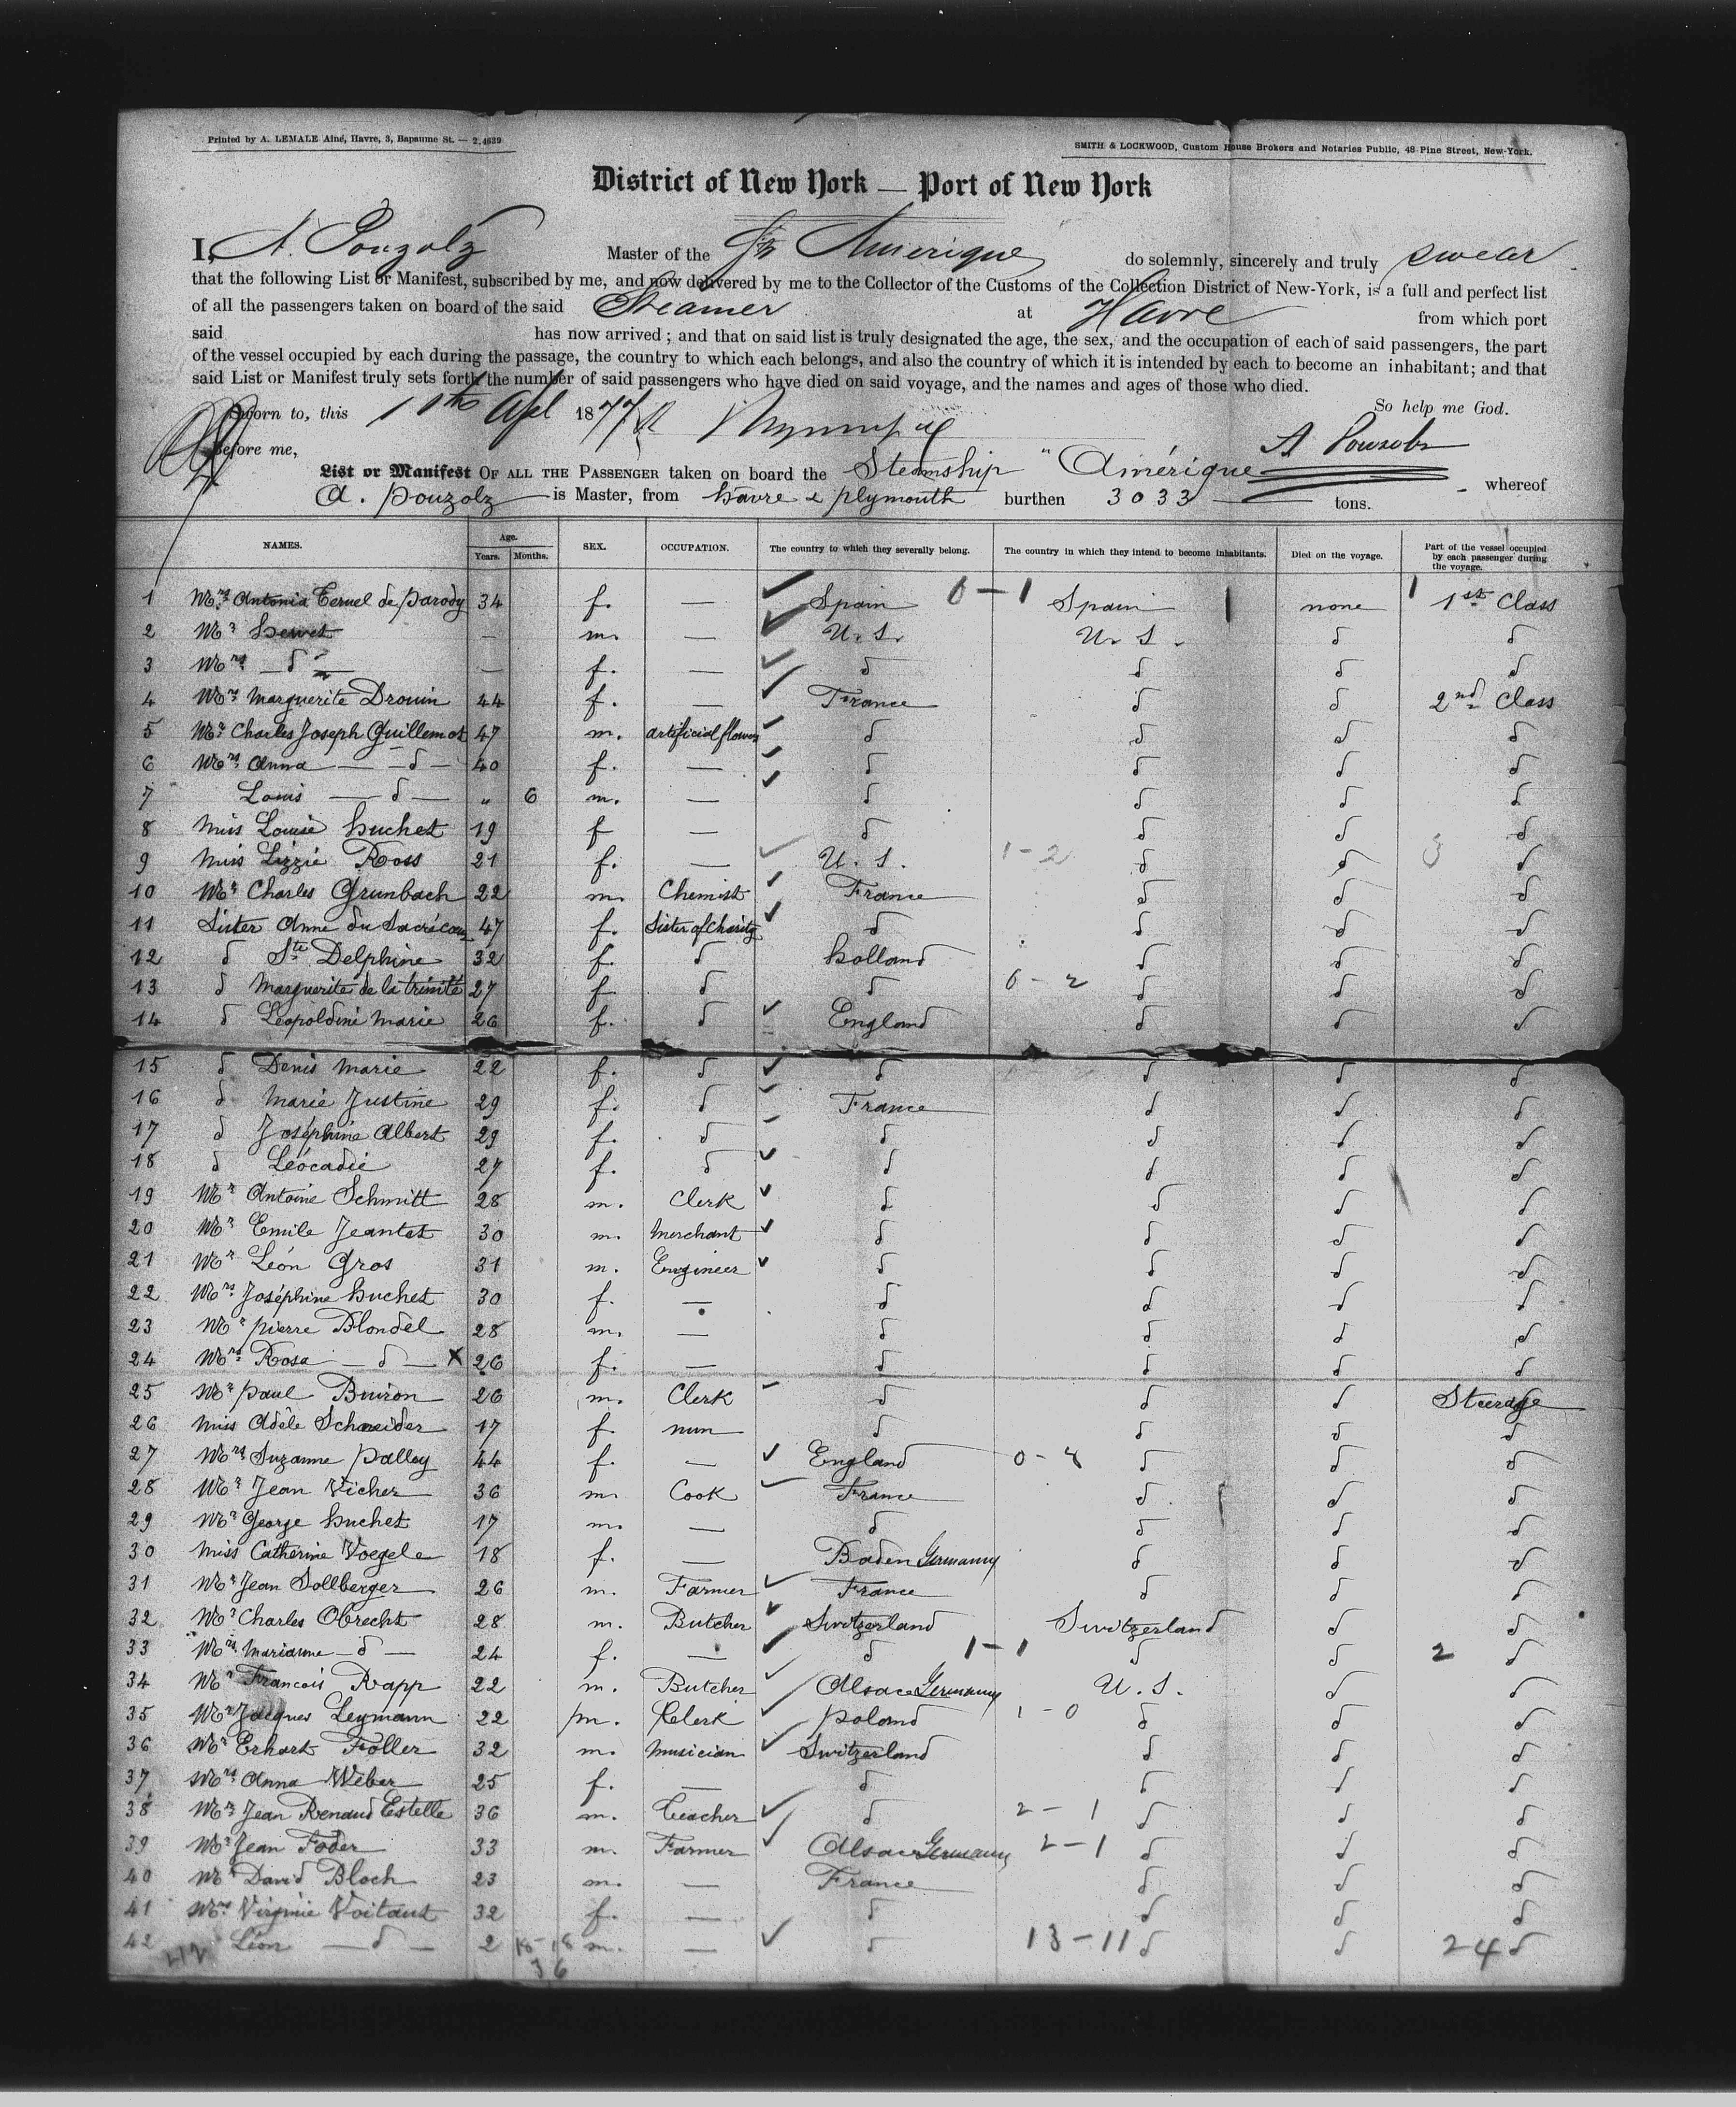 Printed by A. LEMALE Ainé, Havre, 3, Bapaume St. — 2.4639
SMITH & LOCKWOOD, Custom House Brokers and Notaries Public, 48 Pine Street, New-York.
District of New York — Port of New York
I, A. Pouzolz Master of the Amerique do solemnly, sincerely and truly swear
that the following List or Manifest, subscribed by me, and now delivered by me to the Collector of the Customs of the Collection District of New-York, is a full and perfect list
of all the passengers taken on board of the said Steamer at Havre from which port
said has now arrived; and that on said list is truly designated the age, the sex, and the occupation of each of said passengers, the part
of the vessel occupied by each during the passage, the country to which each belongs, and also the country of which it is intended by each to become an inhabitant; and that
said List or Manifest truly sets forth the number of said passengers who have died on said voyage, and the names and ages of those who died.
Sworn to, this 11th Apl 1877 So help me God.
Before me, A Pouzolz
List or Manifest OF ALL THE PASSENGER taken on board the Steamship "Amérique whereof
A. Pouzolz is Master, from Havre & Plymouth burthen 3033 tons.
NAMES. Age. Years. Months. SEX. OCCUPATION. The country to which they severally belong. The country in which they intend to become inhabitants. Died on the voyage. Part of the vessel occupied by each passenger during the voyage.
1 Mrs Antonia Teruel de Parody 34 f. — Spain 0-1 Spain 1 none 1 1st Class
2 Mr — m. — U. S. U. S. d d
3 Mrs — d — — f. — d d d d
4 Mrs Marguerite Drouin 44 f. — France d d 2nd Class
5 Mr Charles Joseph Guillemot 47 m. artificial flower d d d d
6 Mrs Anna — d — 40 f. — d d d d
7 Louis — d — " 6 m. — d d d d
8 Miss Louise Huchet 19 f — d d d d
9 Miss Lizzie Ross 21 f. — U. S. 1-2 d d 3 d
10 Mr Charles Grunbach 22 m. Chemist France d d d
11 Sister Anne du Sacré coeur 47 f. Sister of Charity d d d d
12 d Ste Delphine 32 f. d Holland d d d
13 d Marguerite de la trinité 27 f d d 0-2 d d d
14 d Léopoldine Marie 26 f. d England d d d
15 d Denis Marie 22 f. d d d d d
16 d Marie Justine 29 f. d France d d d
17 d Joséphine Albert 29 f. d d d d d
18 d Léocadie 27 f. d d d d d
19 Mr Antoine Schmitt 28 m. Clerk d d d d
20 Mr Emile Jeantet 30 m. Merchant d d d d
21 Mr Léon Gros 31 m. Engineer d d d d
22 Mrs Joséphine Huchet 30 f. — d d d d
23 Mr Pierre Blondel 28 m. — d d d d
24 Mrs Rosa — d — X 26 f. — d d d d
25 Mr Paul Buiron 26 m. Clerk d d d Steerage
26 Miss Adèle Schneider 17 f. nun d d d d
27 Mrs Suzanne Palley 44 f. — England d d d
28 Mr Jean Vicher 36 m. Cook France d d d
29 Mr George Huchet 17 m. — d d d d
30 Miss Catherine Voegele 18 f. — Baden Germany d d d
31 Mr Jean Sollberger 26 m. Farmer France d d d
32 Mr Charles Obrecht 28 m. Butcher Switzerland Switzerland d d
33 Mrs Marianne — d — 24 f. — d 1-1 d d 2 d
34 Mr Francois Rapp 22 m. Butcher Alsace Germany U. S. d d
35 Mr Jacques Leymann 22 m. Clerk Poland 1-0 d d d
36 Mr Erhart Foller 32 m. Musician Switzerland d d d
37 Mrs Anna Weber 25 f. — d d d d
38 Mr Jean Renaud Estelle 36 m. Teacher d 2-1 d d d
39 Mr Jean Foder 33 m. Farmer Alsace Germany 2-1 d d d
40 Mr David Bloch 23 m. — France d d d
41 Mrs Virginie Voitaut 32 f. — d d d d
42 Léon — d — 2 18-18 m. — d 13-11 d d 24 d
42 36